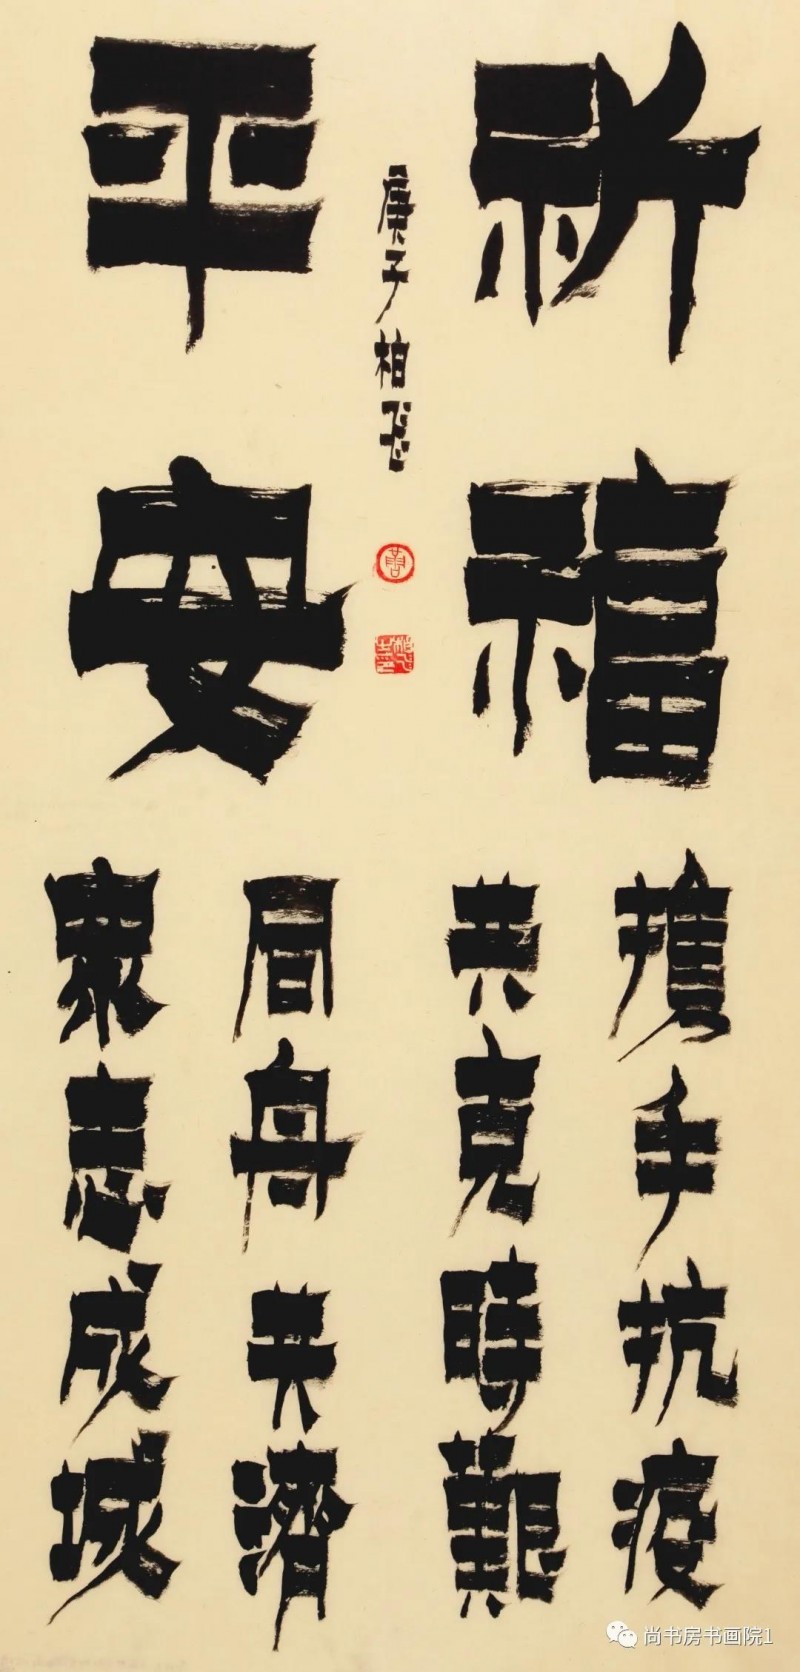 祈福
平安
庚子柏飞
攜手抗疫
共克時艱
同舟共濟
衆志成城
尚书房书画院1